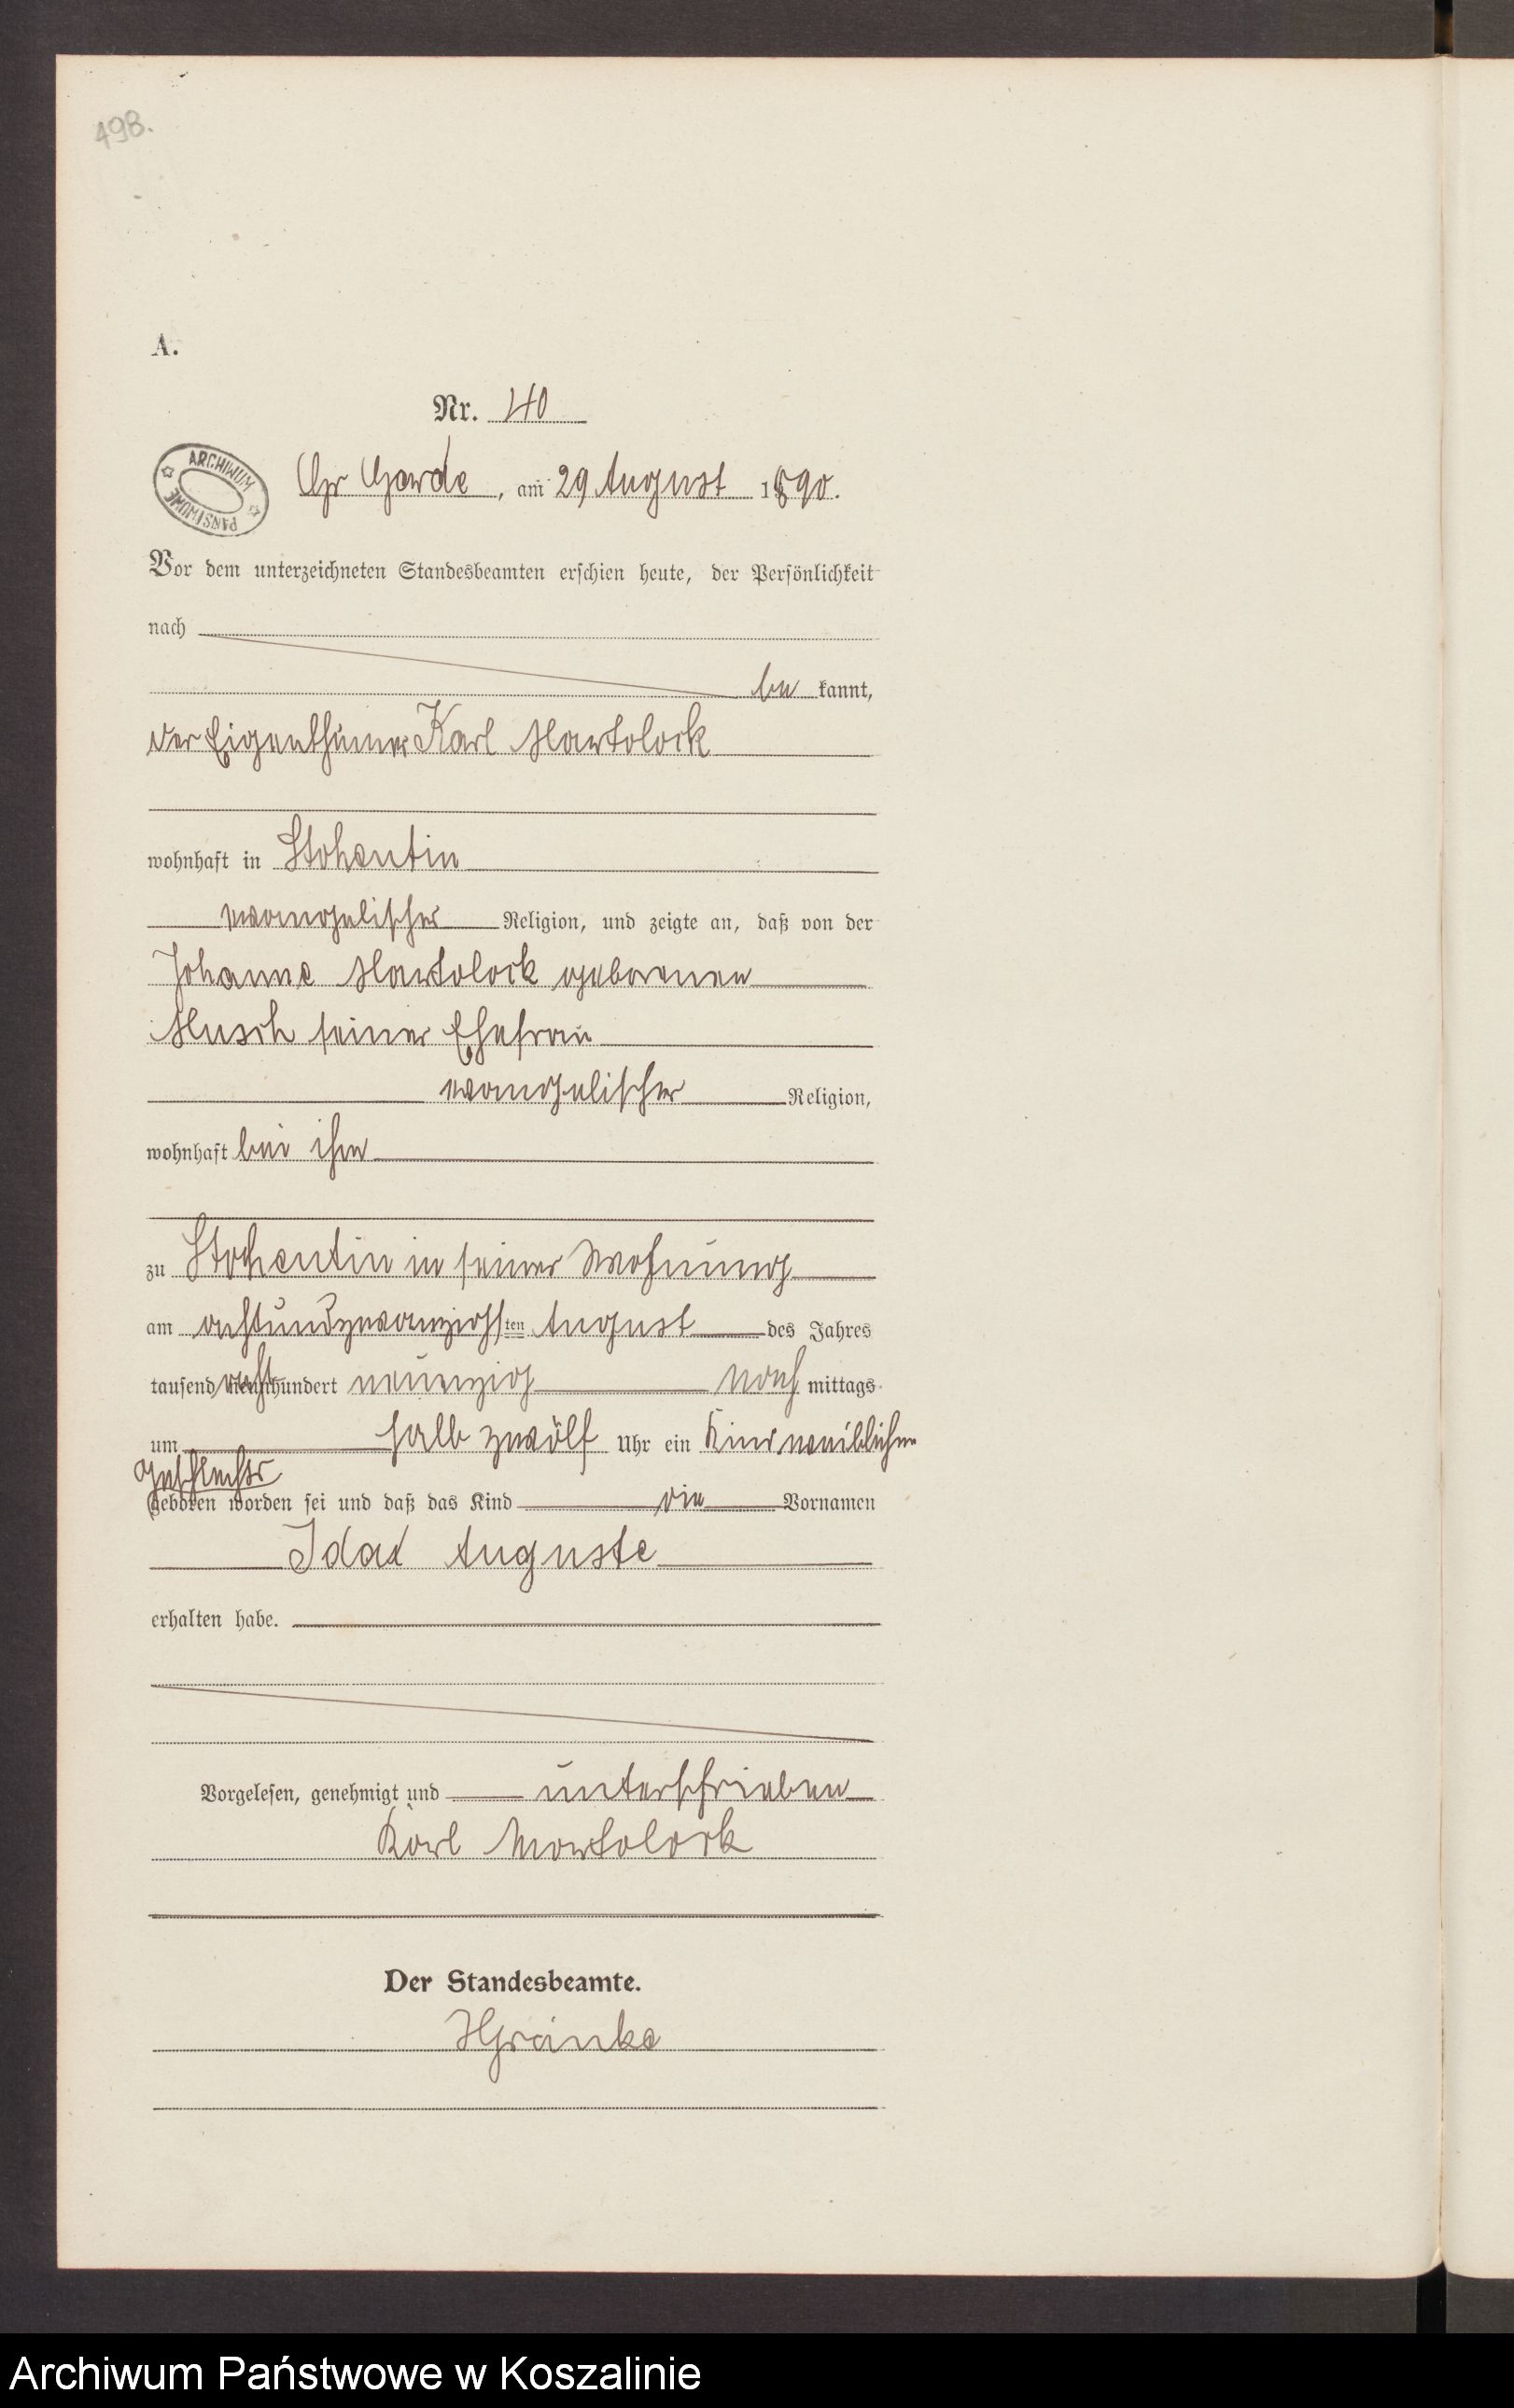 498.
A.
Nr. 40
ARCHIWUM
PAŃSTWOWE
Gr Garde, am 29 August 1890.
Vor dem unterzeichneten Standesbeamten erschien heute, der Persönlichkeit
nach
be kannt,
der Eigenthümer Karl Martolock
wohnhaft in Stohentin
evangelischer Religion, und zeigte an, daß von der
Johanne Martolock geborenen
Musch seiner Ehefrau
evangelischer Religion,
wohnhaft bei ihm
zu Stohentin in seiner Wohnung
am achtundzwanzigsten August des Jahres
tausend acht hundert neunzig Nach mittags
um halb zwölf Uhr ein Kind weiblichen
Geschlechts
geboren worden sei und daß das Kind die Vornamen
Ida Auguste
erhalten habe.
Vorgelesen, genehmigt und unterschrieben
Karl Martolock
Der Standesbeamte.
Archiwum Państwowe w Koszalinie